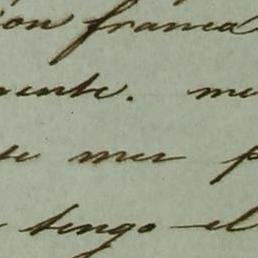 ion franca
mente. me
te mer p
tengo el